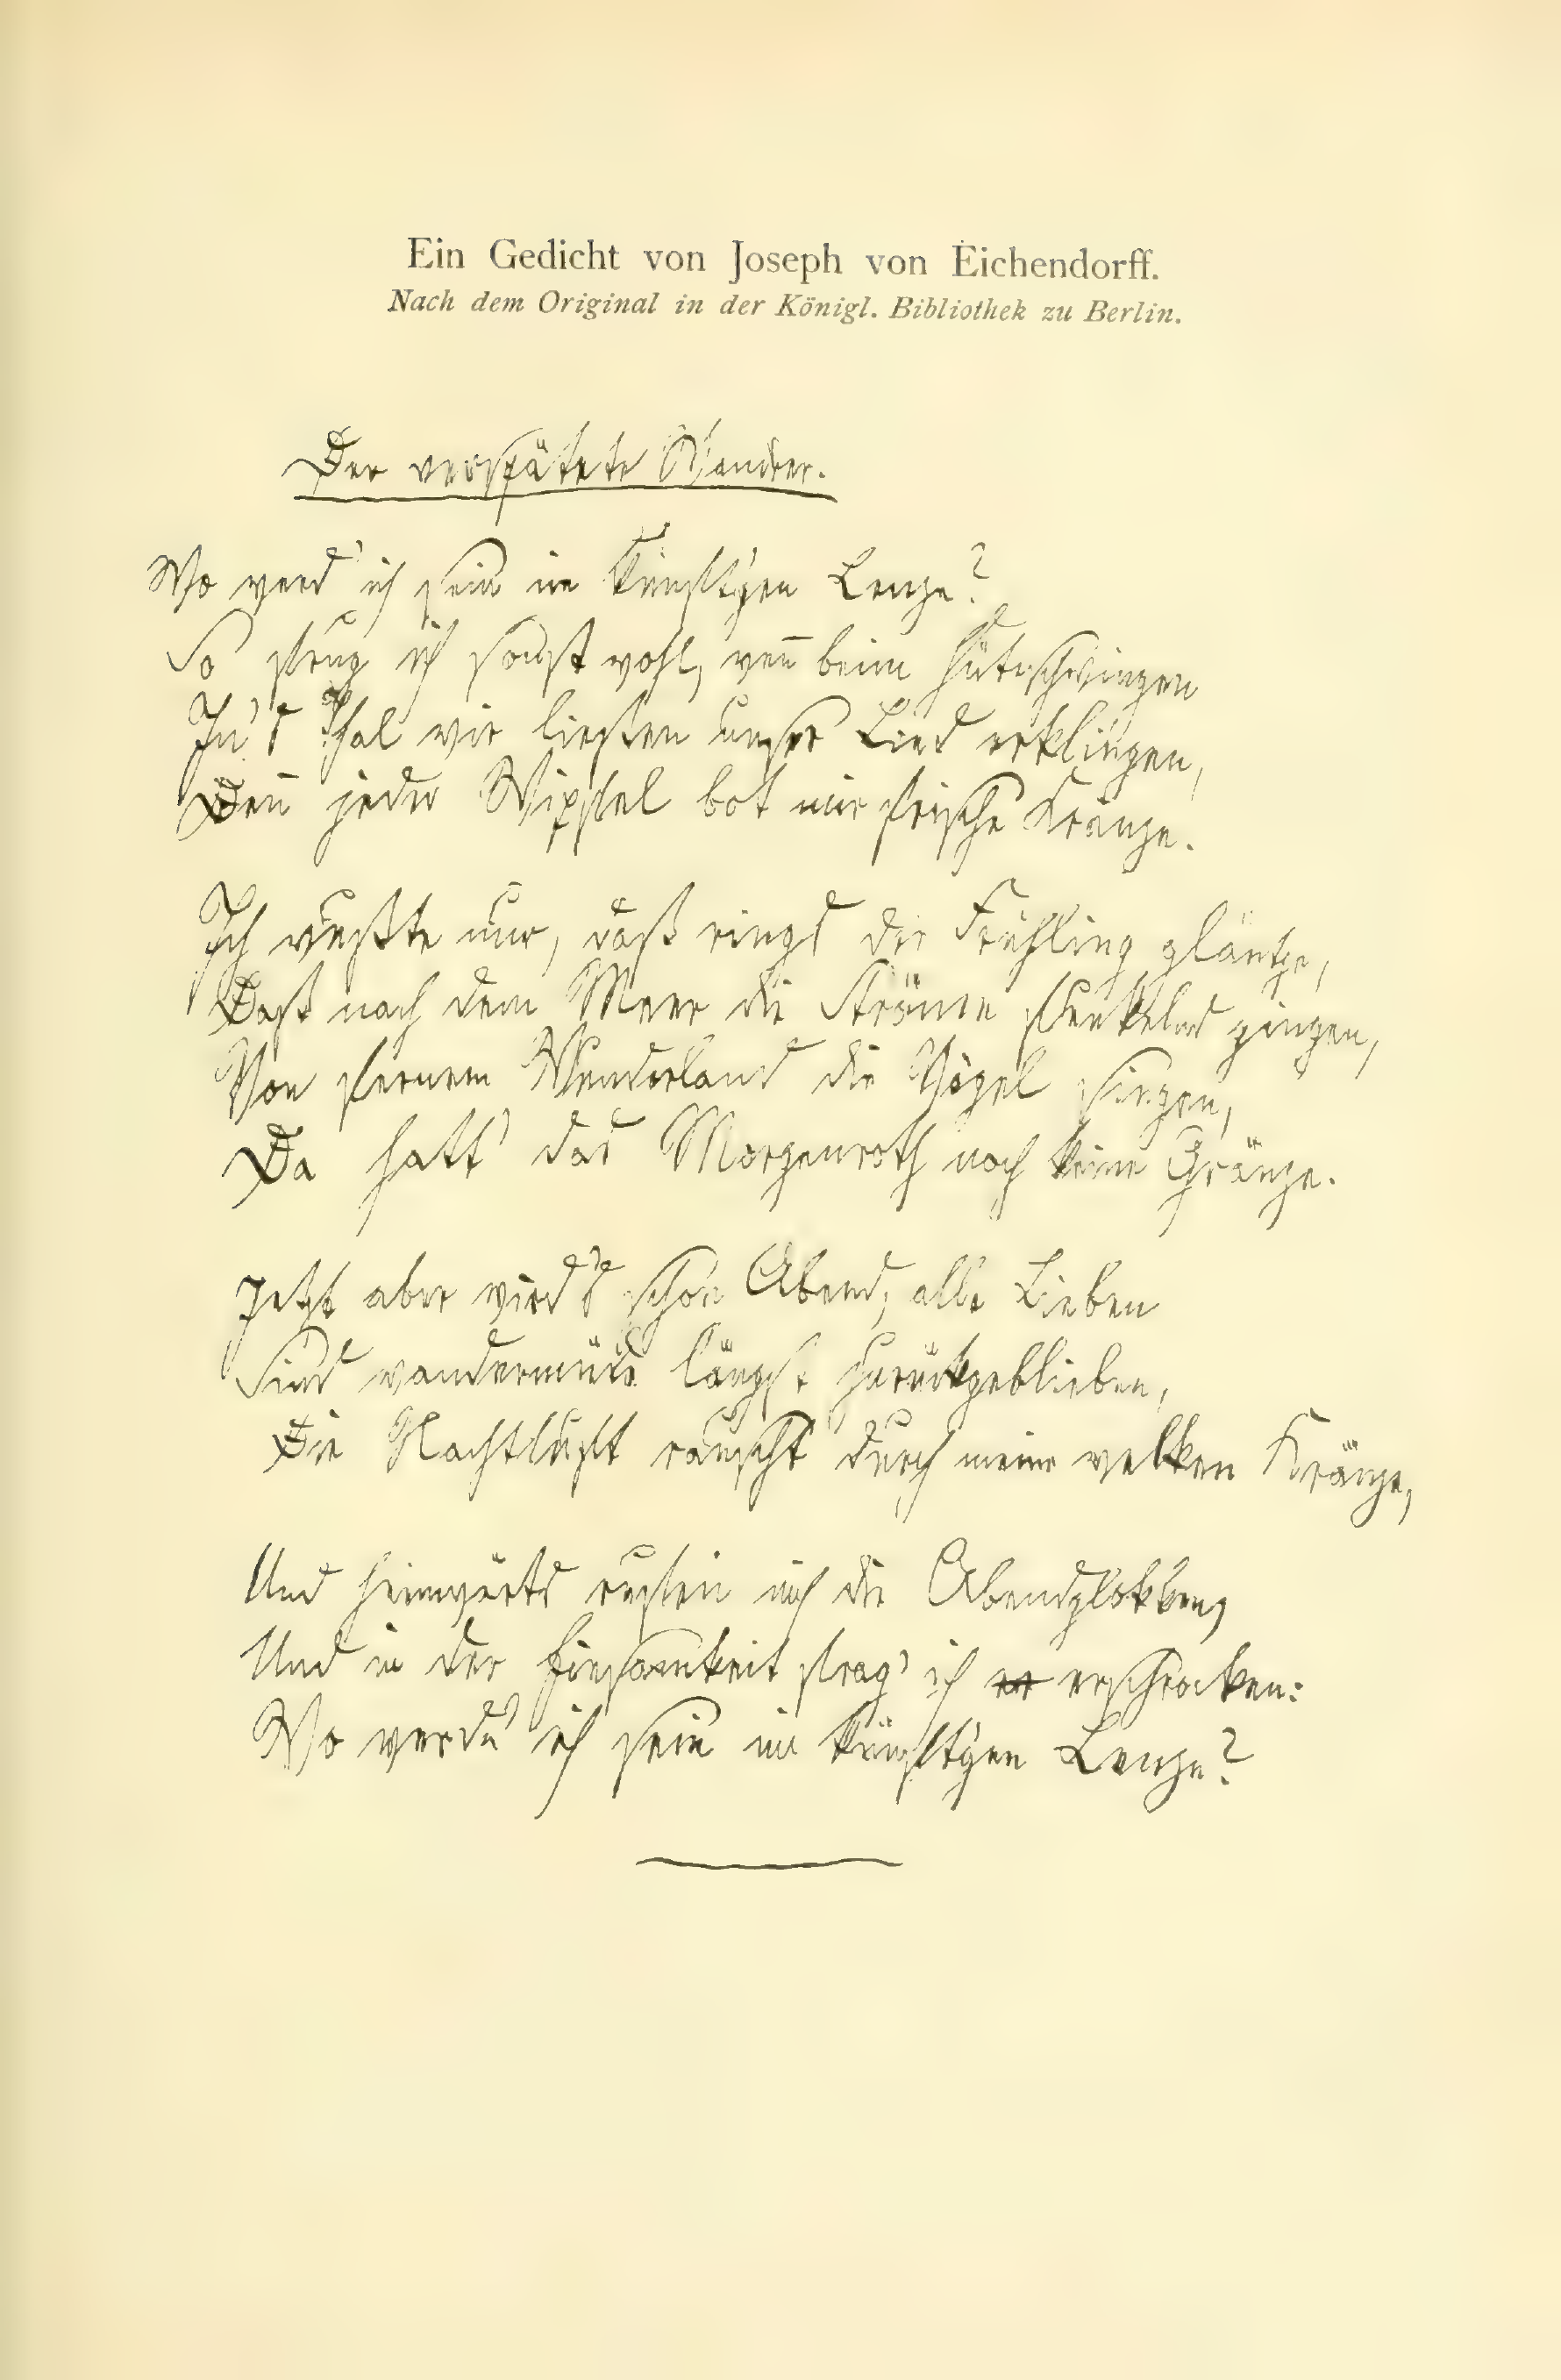 Ein Gedicht von Joseph von Eichendorff.
Nach dem Original in der Königl. Bibliothek zu Berlin.
Der verspätete Wandrer.
Wo werd' ich sein im künft'gen Lenze?
So frug ich sonst wohl, weñ beim Hüteschwingen
In's Thal wir ließen unser Lied erklingen,
Deñ jeder Wipfel bot mir frische Kränze.
Ich wußte nur, daß rings der Frühling gläntze,
Daß nach dem Meer die Ströme funkelnd gingen,
Von fernem Wunderland die Vögel singen,
Da hatt' das Morgenroth noch keine Gränze.
Jetzt aber wird's schon Abend, alle Lieben
Sind wandermüde längst zurückgeblieben,
Die Nachtluft rauscht durch meine welken Kränze,
Und heimwärts rufen mich die Abendglokken,
Und in der Einsamkeit frag' ich erschrocken:
Wo werde' ich sein im künft'gen Lenze?